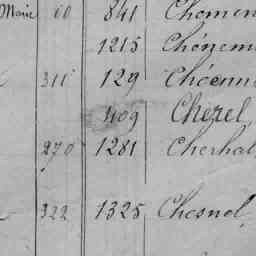 Marie 60 841 Chemin
1215 Chénem
311 129 Chéenn
409 Cherel
270 1281 Cherhal
322 1325 Chesnel